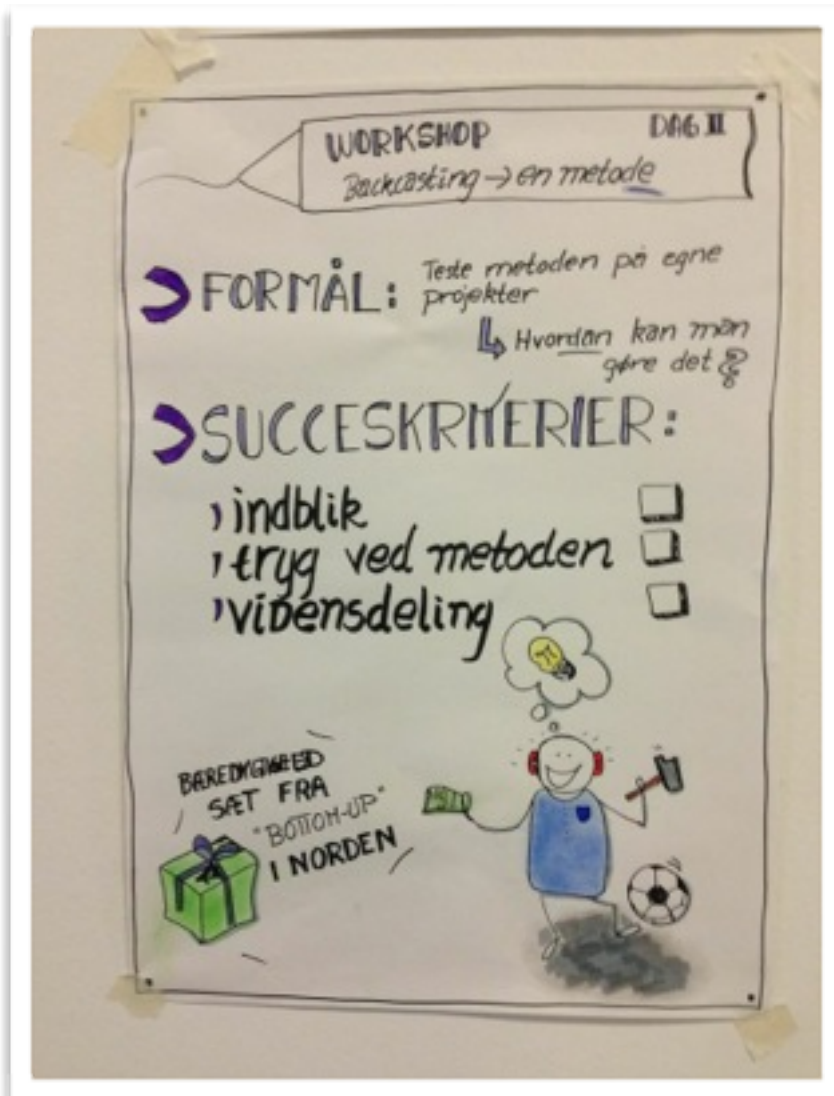 WORKSHOP DAG II
Backcasting → en metode
FORMÅL: Teste metoden på egne
projekter
↳ Hvordan kan man
gøre det?
SUCCESKRITERIER:
indblik
tryg ved metoden
vidensdeling
BÆREDYGTIGHED
SÆT FRA
"BOTTOM-UP"
I NORDEN